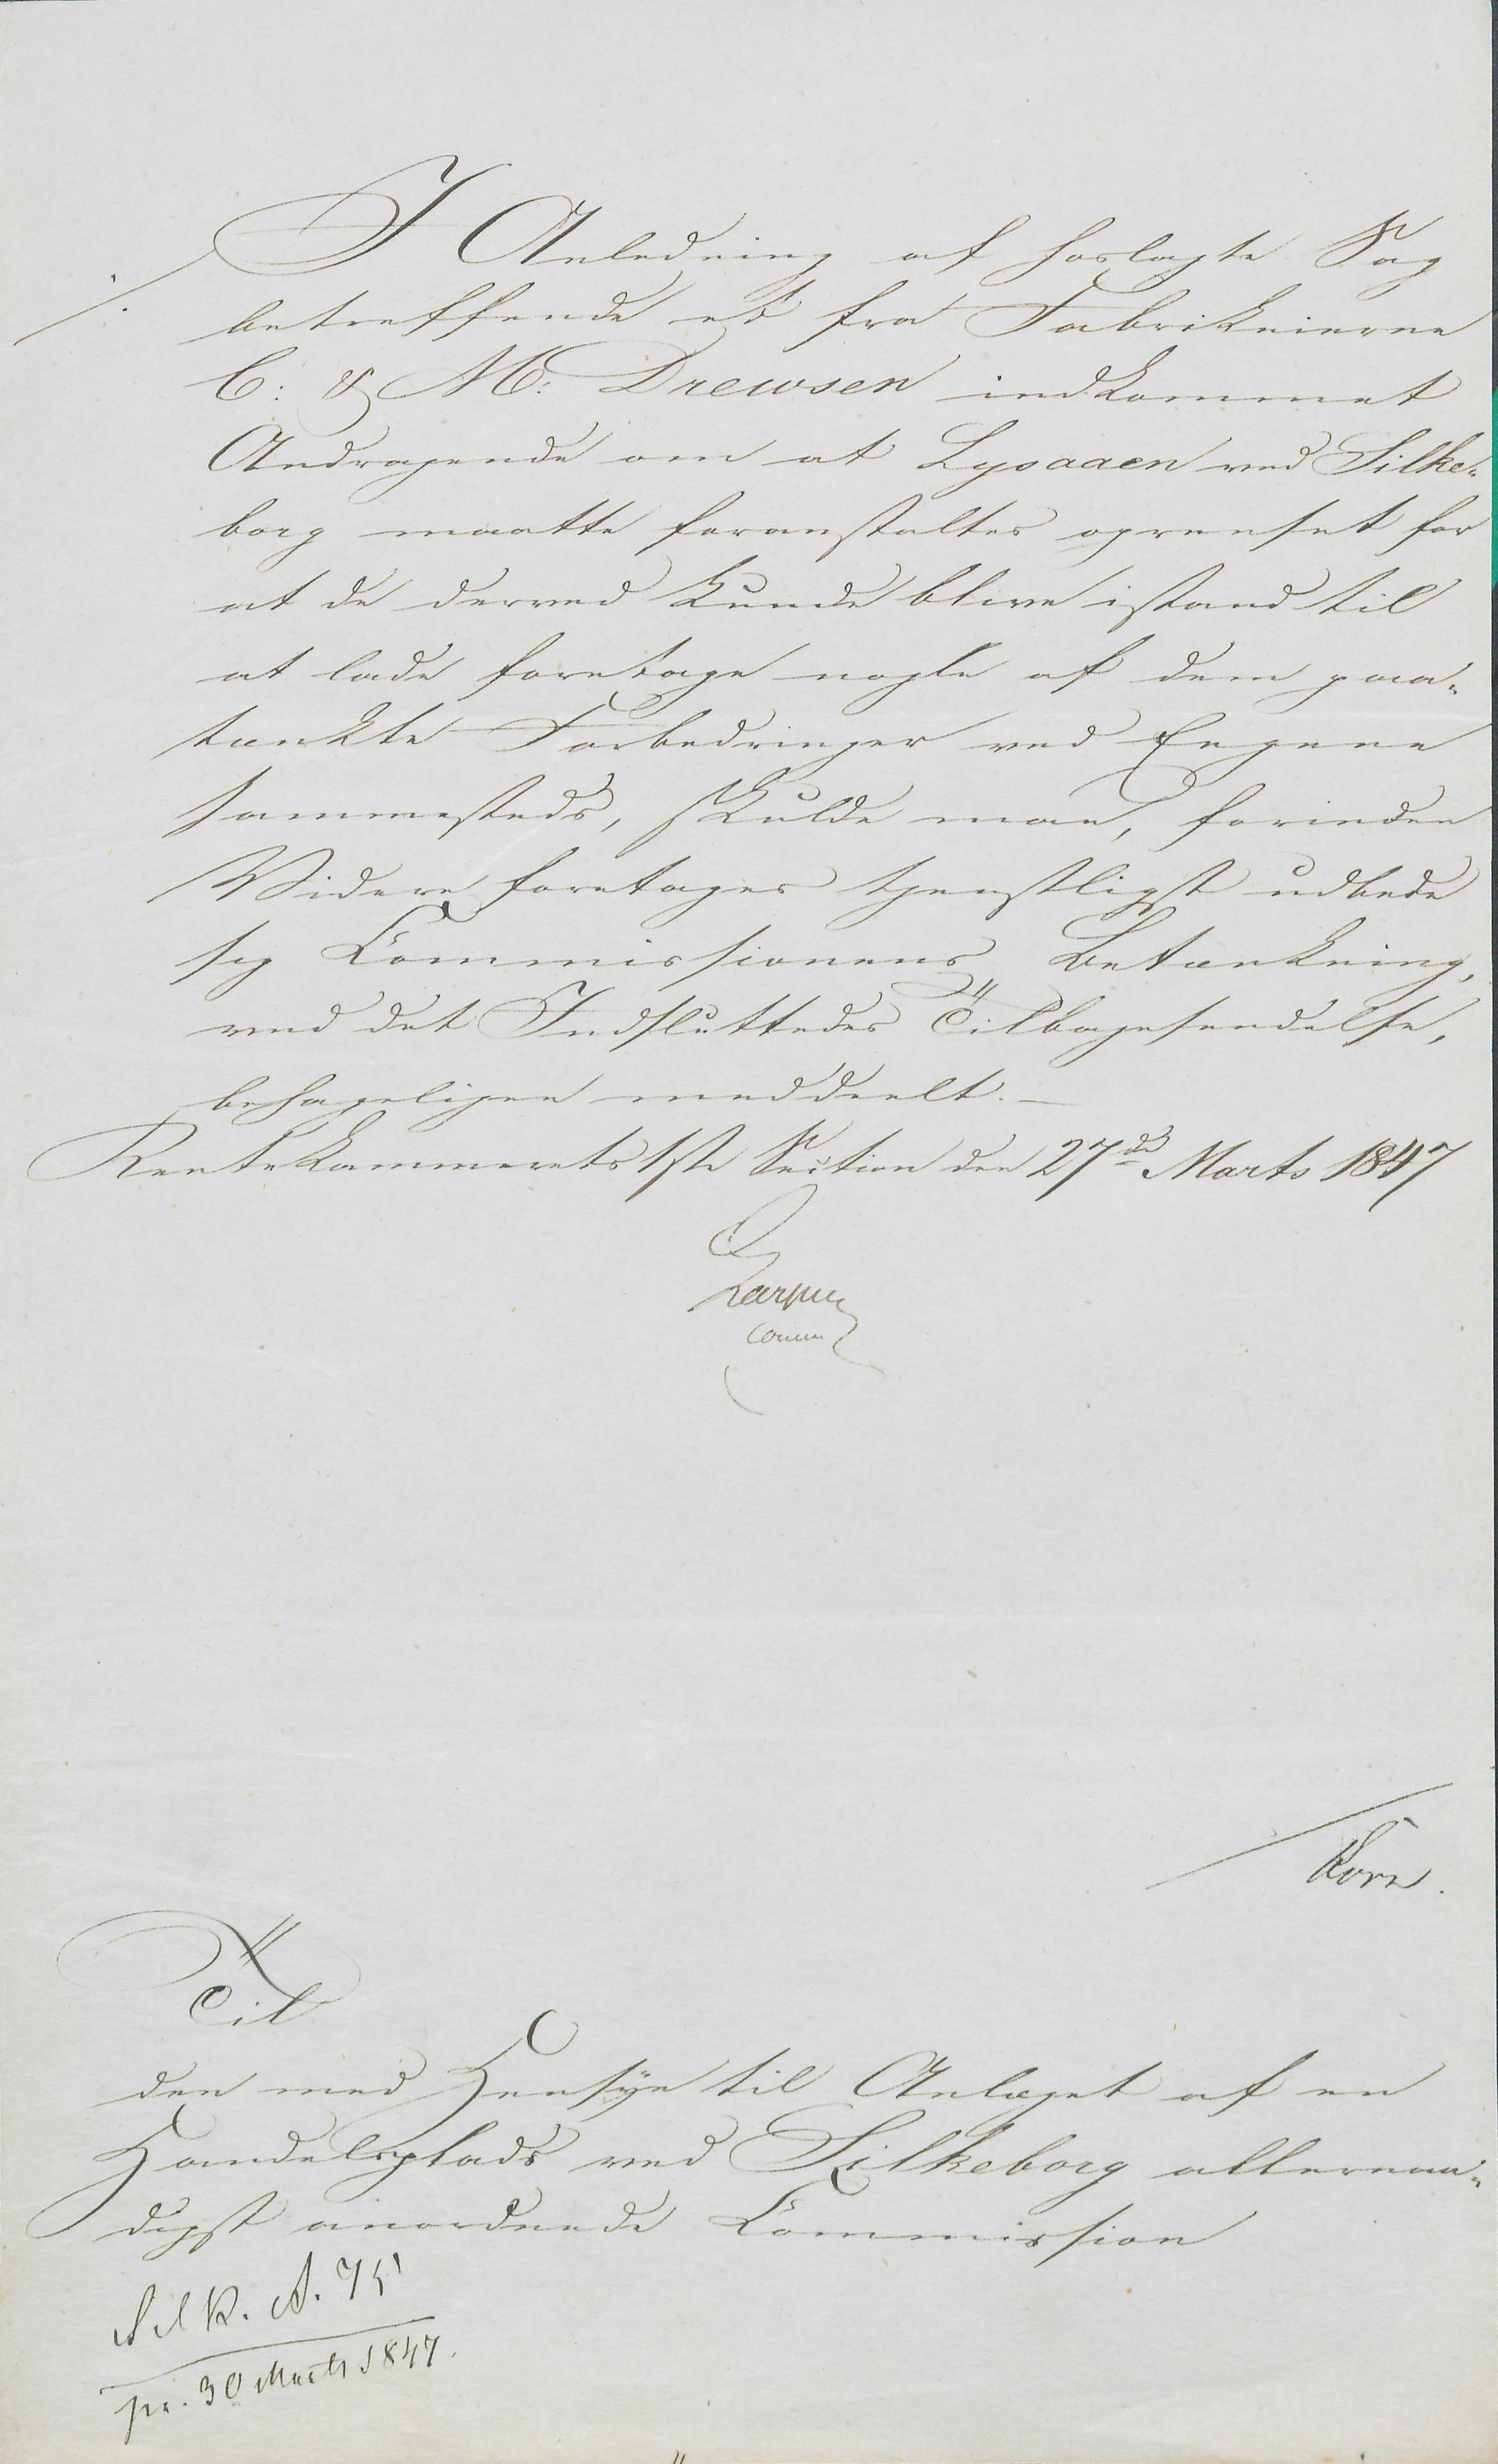 I Anledning af hoslagte Sag
./.
betreffende et fra Fabrikeierne
C: & M: Drewsen indkommet
Andragende om at Lysaaen ved Silke-
borg maatte foranstaltes oprenset for
at de derved kunde blive istand til
at lade foretage nogle af dem paa-
tænkte Forbedringer ved Engene
sammesteds, skulde man, forinden
Videre foretages tjenstligst udbede
sig Commissionens Betænkning,
ved det Indsluttedes Tilbagesendelse,
behageligen meddeelt.
Rentekammerets 1ste Section den 27de Marts 1847
Comm
Korn.
Til
den med Hensyn til Anlæget af en
Handelsplads ved Silkeborg allernaa-
digst anordnede Commission
Silk. A. 75
pr. 30 Marts 1847.